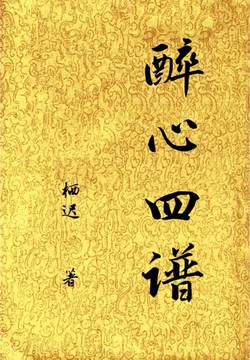 醉心四谱
栖迟 著